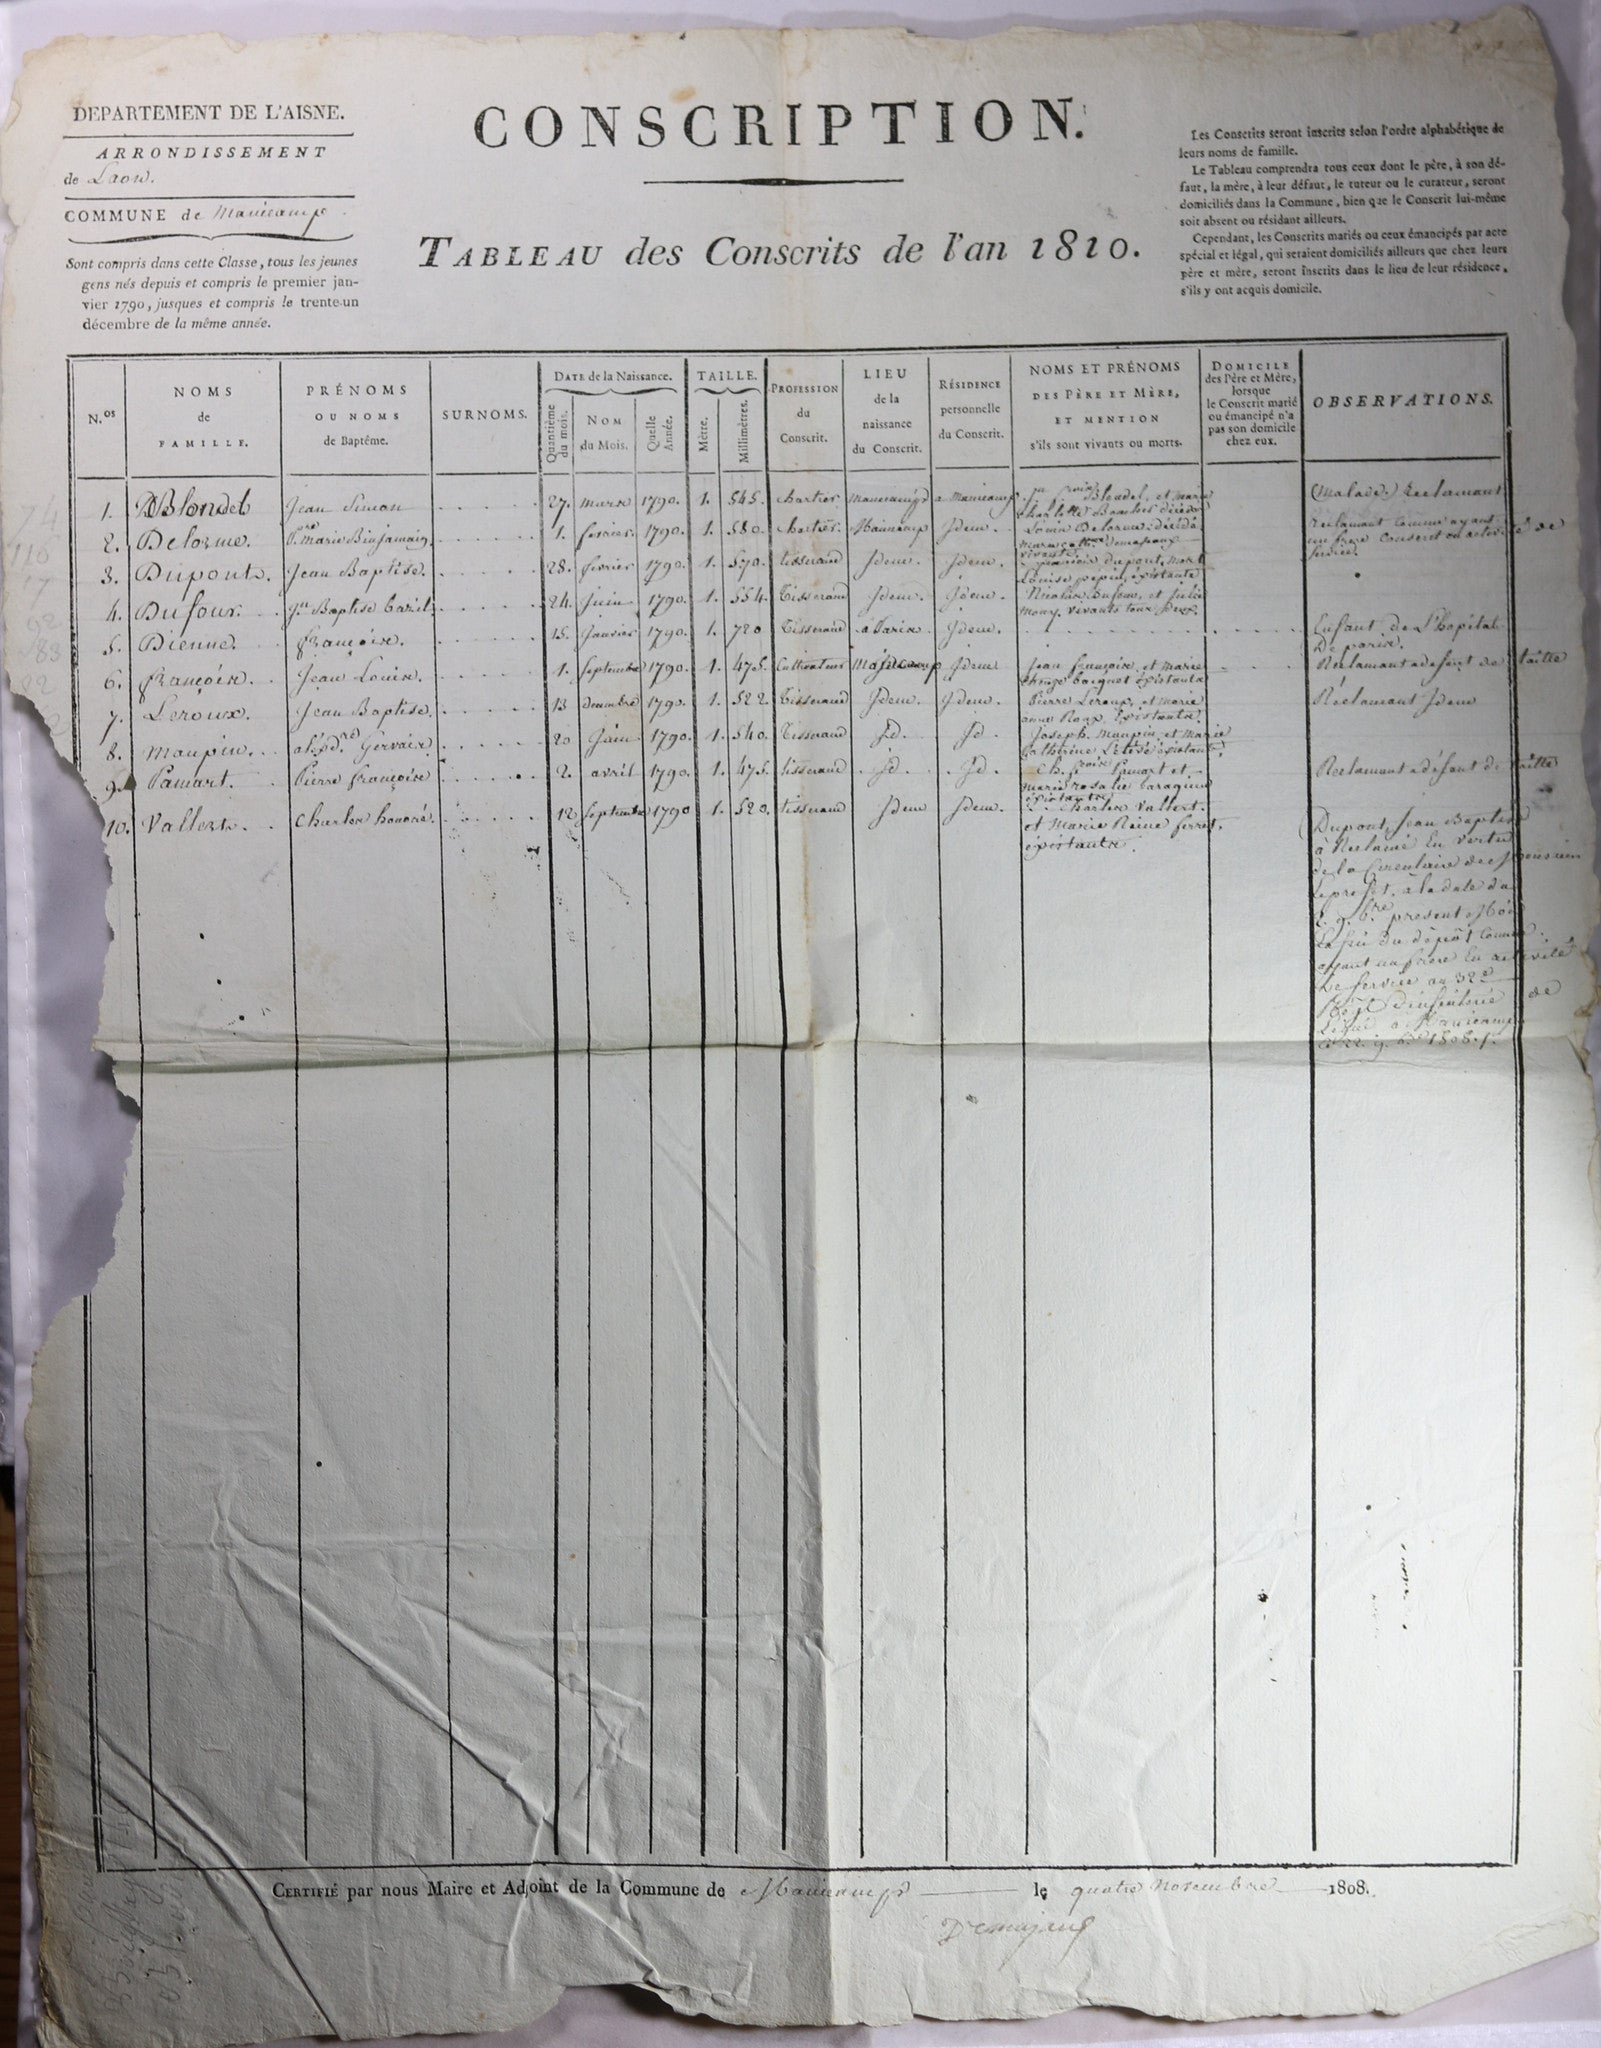 DEPARTEMENT DE L'AISNE.
ARRONDISSEMENT
de Laon.
COMMUNE de Manicamp.
Sont compris dans cette Classe, tous les jeunes
gens nés depuis et compris le premier jan-
vier 1790, jusques et compris le trente-un
décembre de la même année.
CONSCRIPTION.
TABLEAU des Conscrits de l'an 1810.
Les Conscrits seront inscrits selon l'ordre alphabétique de
leurs noms de famille.
Le Tableau comprendra tous ceux dont le père, à son dé-
faut, la mère, à leur défaut, le tuteur ou le curateur, seront
domiciliés dans la Commune, bien que le Conscrit lui-même
soit absent ou résidant ailleurs.
Cependant, les Conscrits mariés ou ceux émancipés par acte
spécial et légal, qui seraient domiciliés ailleurs que chez leurs
père et mère, seront inscrits dans le lieu de leur résidence,
s'ils y ont acquis domicile.
N.os
NOMS
de
FAMILLE.
PRÉNOMS
OU NOMS
de Baptême.
SURNOMS.
DATE de la Naissance.
Quantième
du mois.
NOM
du Mois.
Quelle
Année.
TAILLE.
Mètre.
Millimètres.
PROFESSION
du
Conscrit.
LIEU
de la
naissance
du Conscrit.
RÉSIDENCE
personnelle
du Conscrit.
NOMS ET PRÉNOMS
DES PÈRE ET MÈRE,
ET MENTION
s'ils sont vivants ou morts.
DOMICILE
des Père et Mère,
lorsque
le Conscrit marié
ou émancipé n'a
pas son domicile
chez eux.
OBSERVATIONS.
1. Blondel Jean Simon 27. mars 1790. 1. 545. chartier manicamp a manicamp. Blondel, et marie (Malade) Reclamant
2. Delorme. Marie 1. fevrier 1790. 1. 580. chartier. Manicamp Idem. Louis Delorme. reclamant comme ayant
un frere conscrit en activité de
service.
3. Dupont. Jean Baptise. 28. fevrier 1790. 1. 570. tisserand Idem. Idem. francois dupont, mort
Louise pepin, existante
4. Dufour. Jn Baptise 24. Juin 1790. 1. 554. Tisserand Idem. Idem. Nicolas Dufour, et Julie
mony. vivants tous deux.
5. Dienne. françois. 15. Janvier 1790. 1. 720 Tisserand a Paris. Idem. Enfant de L'hopital
De paris.
6. françois. Jean Louis. 1. septembre 1790. 1. 475. Cultivateur Manicamp Idem Jean françois, et marie
existants Reclamant a defaut de taille
7. Leroux. Jean Baptise. 13 decembre 1790. 1. 522. Tisserand Idem. Idem. Pierre Leroux, et marie
anne Roax, existants. Réclamant Idem
8. Maupin. Gervais 20 Juin 1790. 1. 540. Tisserand Id. Id. Joseph Maupin, et marie
catherine existants
9. Pamart. Pierre françois 2. avril 1790. 1. 475. tisserand Id. Id. Ch. frois Pamart et
marie rosalie
existants Reclamant a defaut de taille
10. Vallert. Charles honoré. 12 septembre 1790 1. 520. tisserand Idem Idem. Charles Vallert.
et Marie Reine ferret.
existants.
Dupont, Jean Baptise
à Reclamé En vertu
de la Circulaire de Monsieur
Le prefet, à la date du
present mois
du dépôt comme
ayant un frere En activité
De service au 32e
Regt D'infenterie de
Manicamp
22. 9. bre 1808.
CERTIFIÉ par nous Maire et Adjoint de la Commune de Manicamp le quatre Novembre 1808.
Demajeux